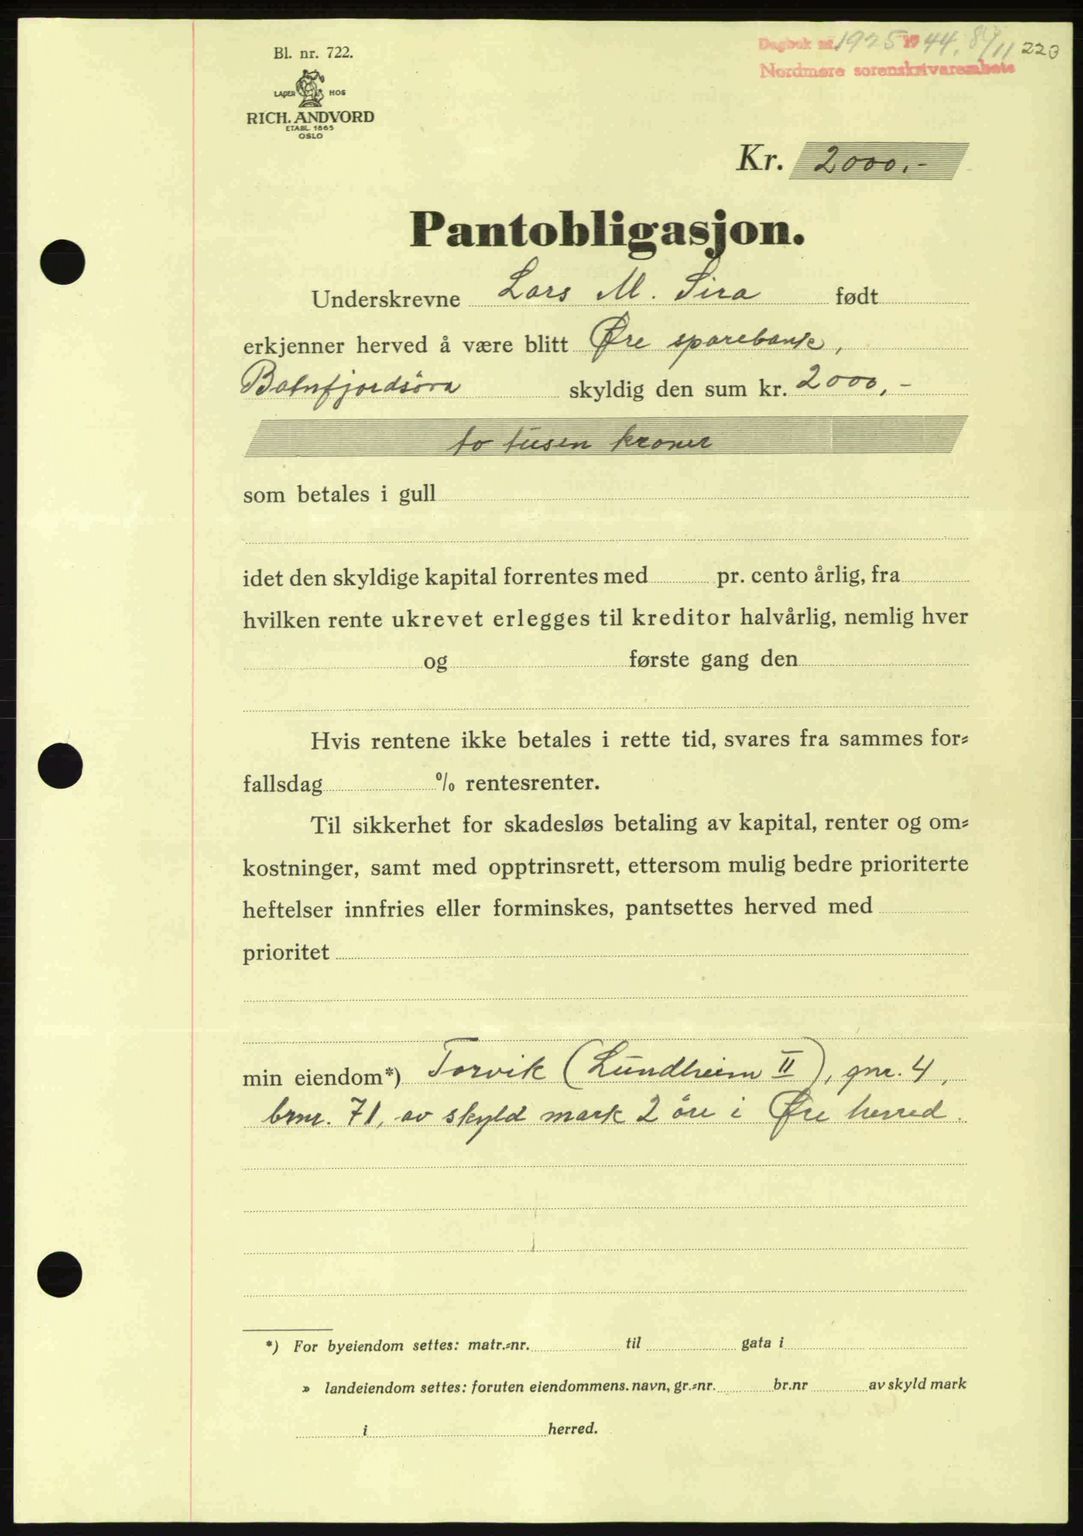 Bl. nr. 722.
LAGER HOS
RICH. ANDVORD
ETABL. 1865
OSLO
Dagbok nr. 1925 1944, 8/11 223
Nordmøre sorenskrivarembete
Kr. 2000,-
Pantobligasjon.
Underskrevne Lars M. Sira født
erkjenner herved å være blitt Øre sparebank,
Batnfjordsøra skyldig den sum kr. 2000,-
to tusen kroner
som betales i gull
idet den skyldige kapital forrentes med pr. cento årlig, fra
hvilken rente ukrevet erlegges til kreditor halvårlig, nemlig hver
og første gang den
Hvis rentene ikke betales i rette tid, svares fra sammes for-
fallsdag % rentesrenter.
Til sikkerhet for skadesløs betaling av kapital, renter og om-
kostninger, samt med opptrinsrett, ettersom mulig bedre prioriterte
heftelser innfries eller forminskes, pantsettes herved med
prioritet
min eiendom*) Torvik (Lundheim II), gnr. 4,
brnr. 71, av skyld mark 2 øre i Øre herred.
*) For byeiendom settes: matr.-nr. til gata i
» landeiendom settes: foruten eiendommens. navn, gr.-nr. br.nr av skyld mark
i herred.